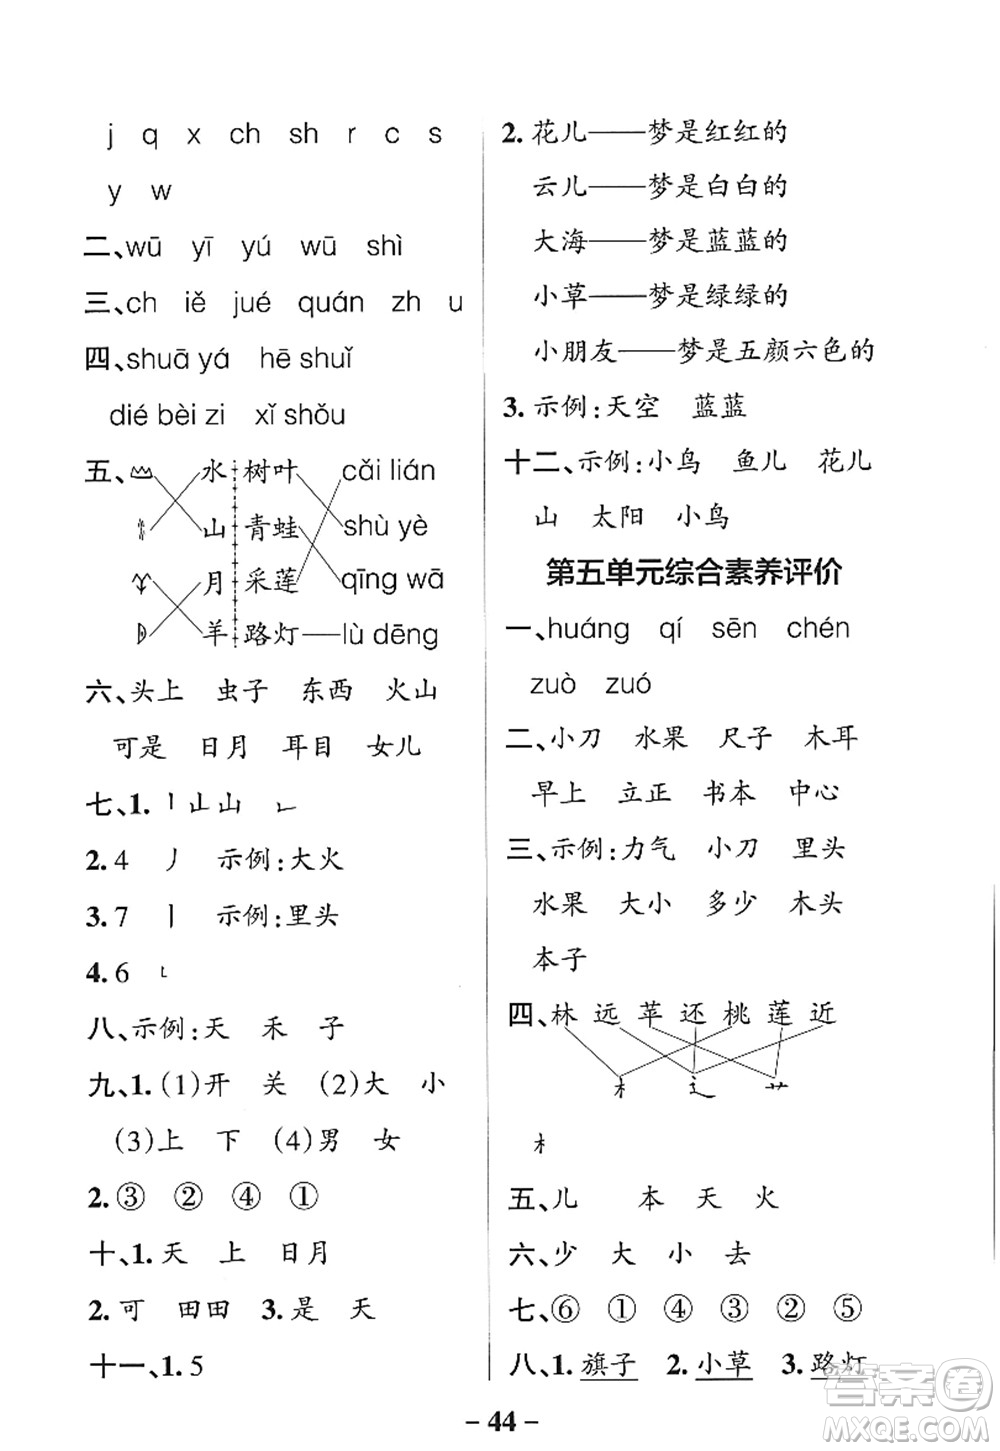 j q x ch sh r c s
y w
二、wū yī yú wū shì
三、ch iě jué quán zh u
四、shuā yá hē shuǐ
dié bèi zi xǐ shǒu
五、 水 树叶 cǎi lián
山 青蛙 shù yè
月 采莲 qīng wā
羊 路灯 lù dēng
六、头上 虫子 东西 火山
可是 日月 耳目 女儿
七、1.丨 山 山 ㇗
2.4 丿 示例:大火
3.7 丨 示例:里头
4.6 ㇙
八、示例:天 禾 子
九、1.(1)开 关 (2)大 小
(3)上 下 (4)男 女
2.③ ② ④ ①
十、1.天 上 日月
2.可 田田 3.是 天
十一、1.5
2.花儿——梦是红红的
云儿——梦是白白的
大海——梦是蓝蓝的
小草——梦是绿绿的
小朋友——梦是五颜六色的
3.示例:天空 蓝蓝
十二、示例:小鸟 鱼儿 花儿
山 太阳 小鸟
第五单元综合素养评价
一、huáng qí sēn chén
zuò zuó
二、小刀 水果 尺子 木耳
早上 立正 书本 中心
三、示例:力气 小刀 里头
水果 大小 多少 木头
本子
四、林 远 苹 还 桃 莲 近
木 辶 艹
木
五、儿 本 天 火
六、少 大 小 去
七、⑥ ① ④ ③ ② ⑤
八、1.旗子 2.小草 3.路灯
- 44 -
答案圈
MXQE.COM